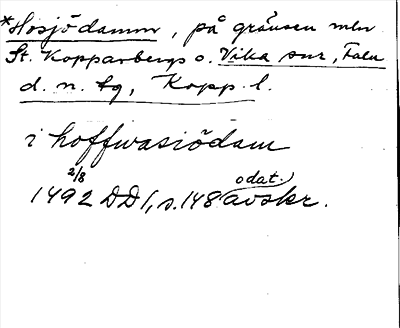 *Hosjödamm, på gränsen mln
St. Kopparbergs o. Vika snr, Falu
d. n. tg, Kopp. l.
i hoffwasiödam
2/8 odat.
1492 DD 1, s. 148 avskr.